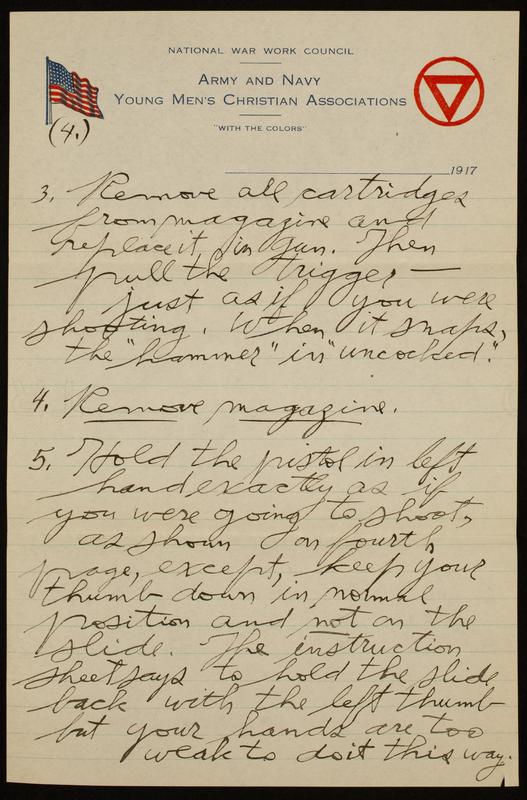 NATIONAL WAR WORK COUNCIL
ARMY AND NAVY
YOUNG MEN'S CHRISTIAN ASSOCIATIONS
"WITH THE COLORS"
(4.)
1917
3. Remove all cartridges
from magazine and
replace it in gun. Then
pull the trigger —
just as if you were
shooting. When it snaps,
the "hammer" is "uncocked".
4. Remove magazine.
5. Hold the pistol in left
hand exactly as if
you were going to shoot,
as shown on fourth
page, except, keep your
thumb down in normal
position and not on the
slide. The instruction
sheet says to hold the slide
back with the left thumb
but your hands are too
weak to do it this way.